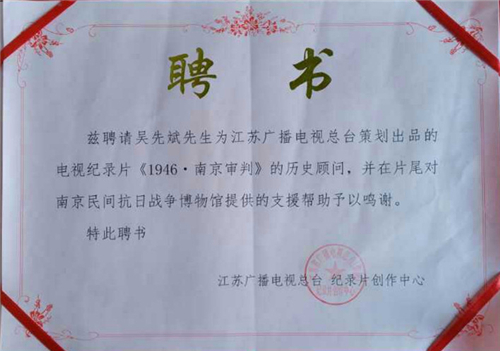 聘 书
兹聘请吴先斌先生为江苏广播电视总台策划出品的
电视纪录片《1946·南京审判》的历史顾问，并在片尾对
南京民间抗日战争博物馆提供的支援帮助予以鸣谢。
特此聘书
江苏广播电视总台 纪录片创作中心